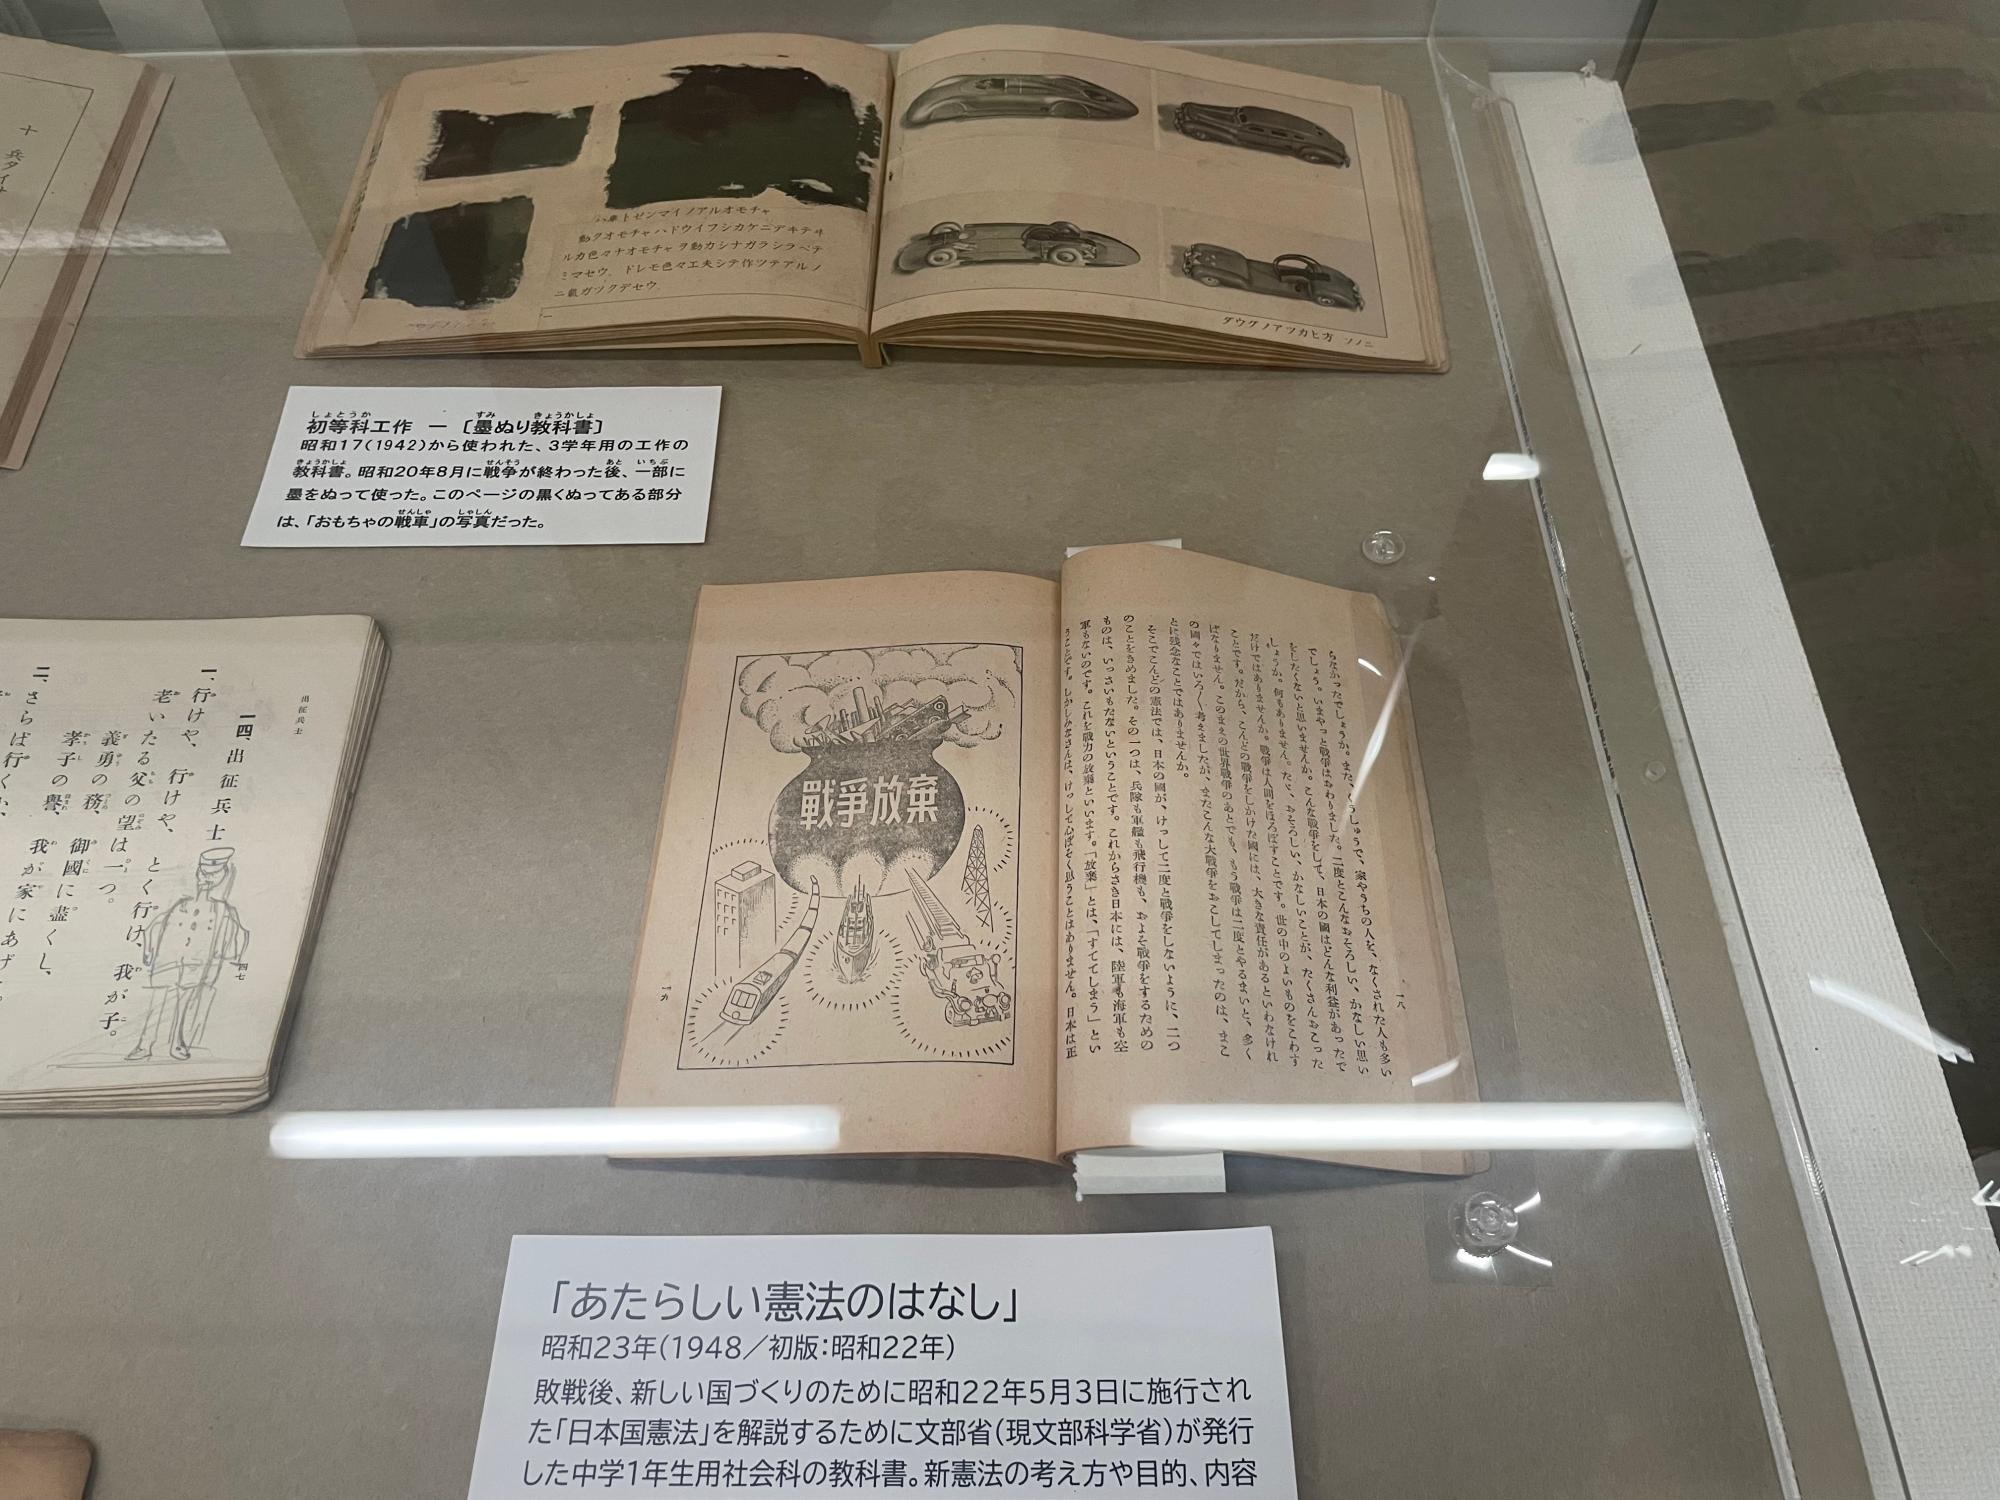 十 兵タイ
ゼンマイノアルオモチャ
動クオモチャハドウイフシカケニデキテヰ
ルカ色々ナオモチャヲ動カシナガラシラベテ
ミマセウ。ドレモ色々工夫シテ作ツテアルノ
ニ氣ガツクデセウ。
ダウグノアツカヒ方 ソノ二
しょとうか すみ きょうかしょ
初等科工作 一 〔墨ぬり教科書〕
昭和17(1942)から使われた、3学年用の工作の
きょうかしょ せんそう あと いちぶ
教科書。昭和20年8月に戦争が終わった後、一部に
墨をぬって使った。このページの黒くぬってある部分
せんしゃ しゃしん
は、「おもちゃの戦車」の写真だった。
出征兵士
一四、出征兵士
一、行けや、行けや、とく行け、我が子。
老いたる父の望は一つ。
義勇の務、御國に盡くし、
孝子の譽、我が家にあげ
二、さらば行くか、
四七
らなかったでしょうか。また、くうしゅうで、家やうちの人を、なくされた人も多い
でしょう。いまやっと戰爭はおわりました。二度とこんなおそろしい、かなしい思い
をしたくないと思いませんか。こんな戰爭をして、日本の國はどんな利益があったで
しょうか。何もありません。たゞ、おそろしい、かなしいことが、たくさんおこった
だけではありませんか。戰爭は人間をほろぼすことです。世の中のよいものをこわす
ことです。だから、こんどの戰爭をしかけた國には、大きな責任があるといわなけれ
ばなりません。このまえの世界戰爭のあとでも、もう戰爭は二度とやるまいと、多く
の國々ではいろ〱考えましたが、またこんな大戰爭をおこしてしまったのは、まこ
とに残念なことではありませんか。
そこでこんどの憲法では、日本の國が、けっして二度と戰爭をしないように、二つ
のことをきめました。その一つは、兵隊も軍艦も飛行機も、およそ戰爭をするための
ものは、いっさいもたないということです。これからさき日本には、陸軍も海軍も空
軍もないのです。これを戰力の放棄といいます。「放棄」とは、「すててしまう」とい
うことです。しかしみなさんは、けっして心ぼそく思うことはありません。日本は正
十八
戰爭放棄
十九
「あたらしい憲法のはなし」
昭和23年(1948／初版:昭和22年)
敗戦後、新しい国づくりのために昭和22年5月3日に施行され
た「日本国憲法」を解説するために文部省(現文部科学省)が発行
した中学1年生用社会科の教科書。新憲法の考え方や目的、内容